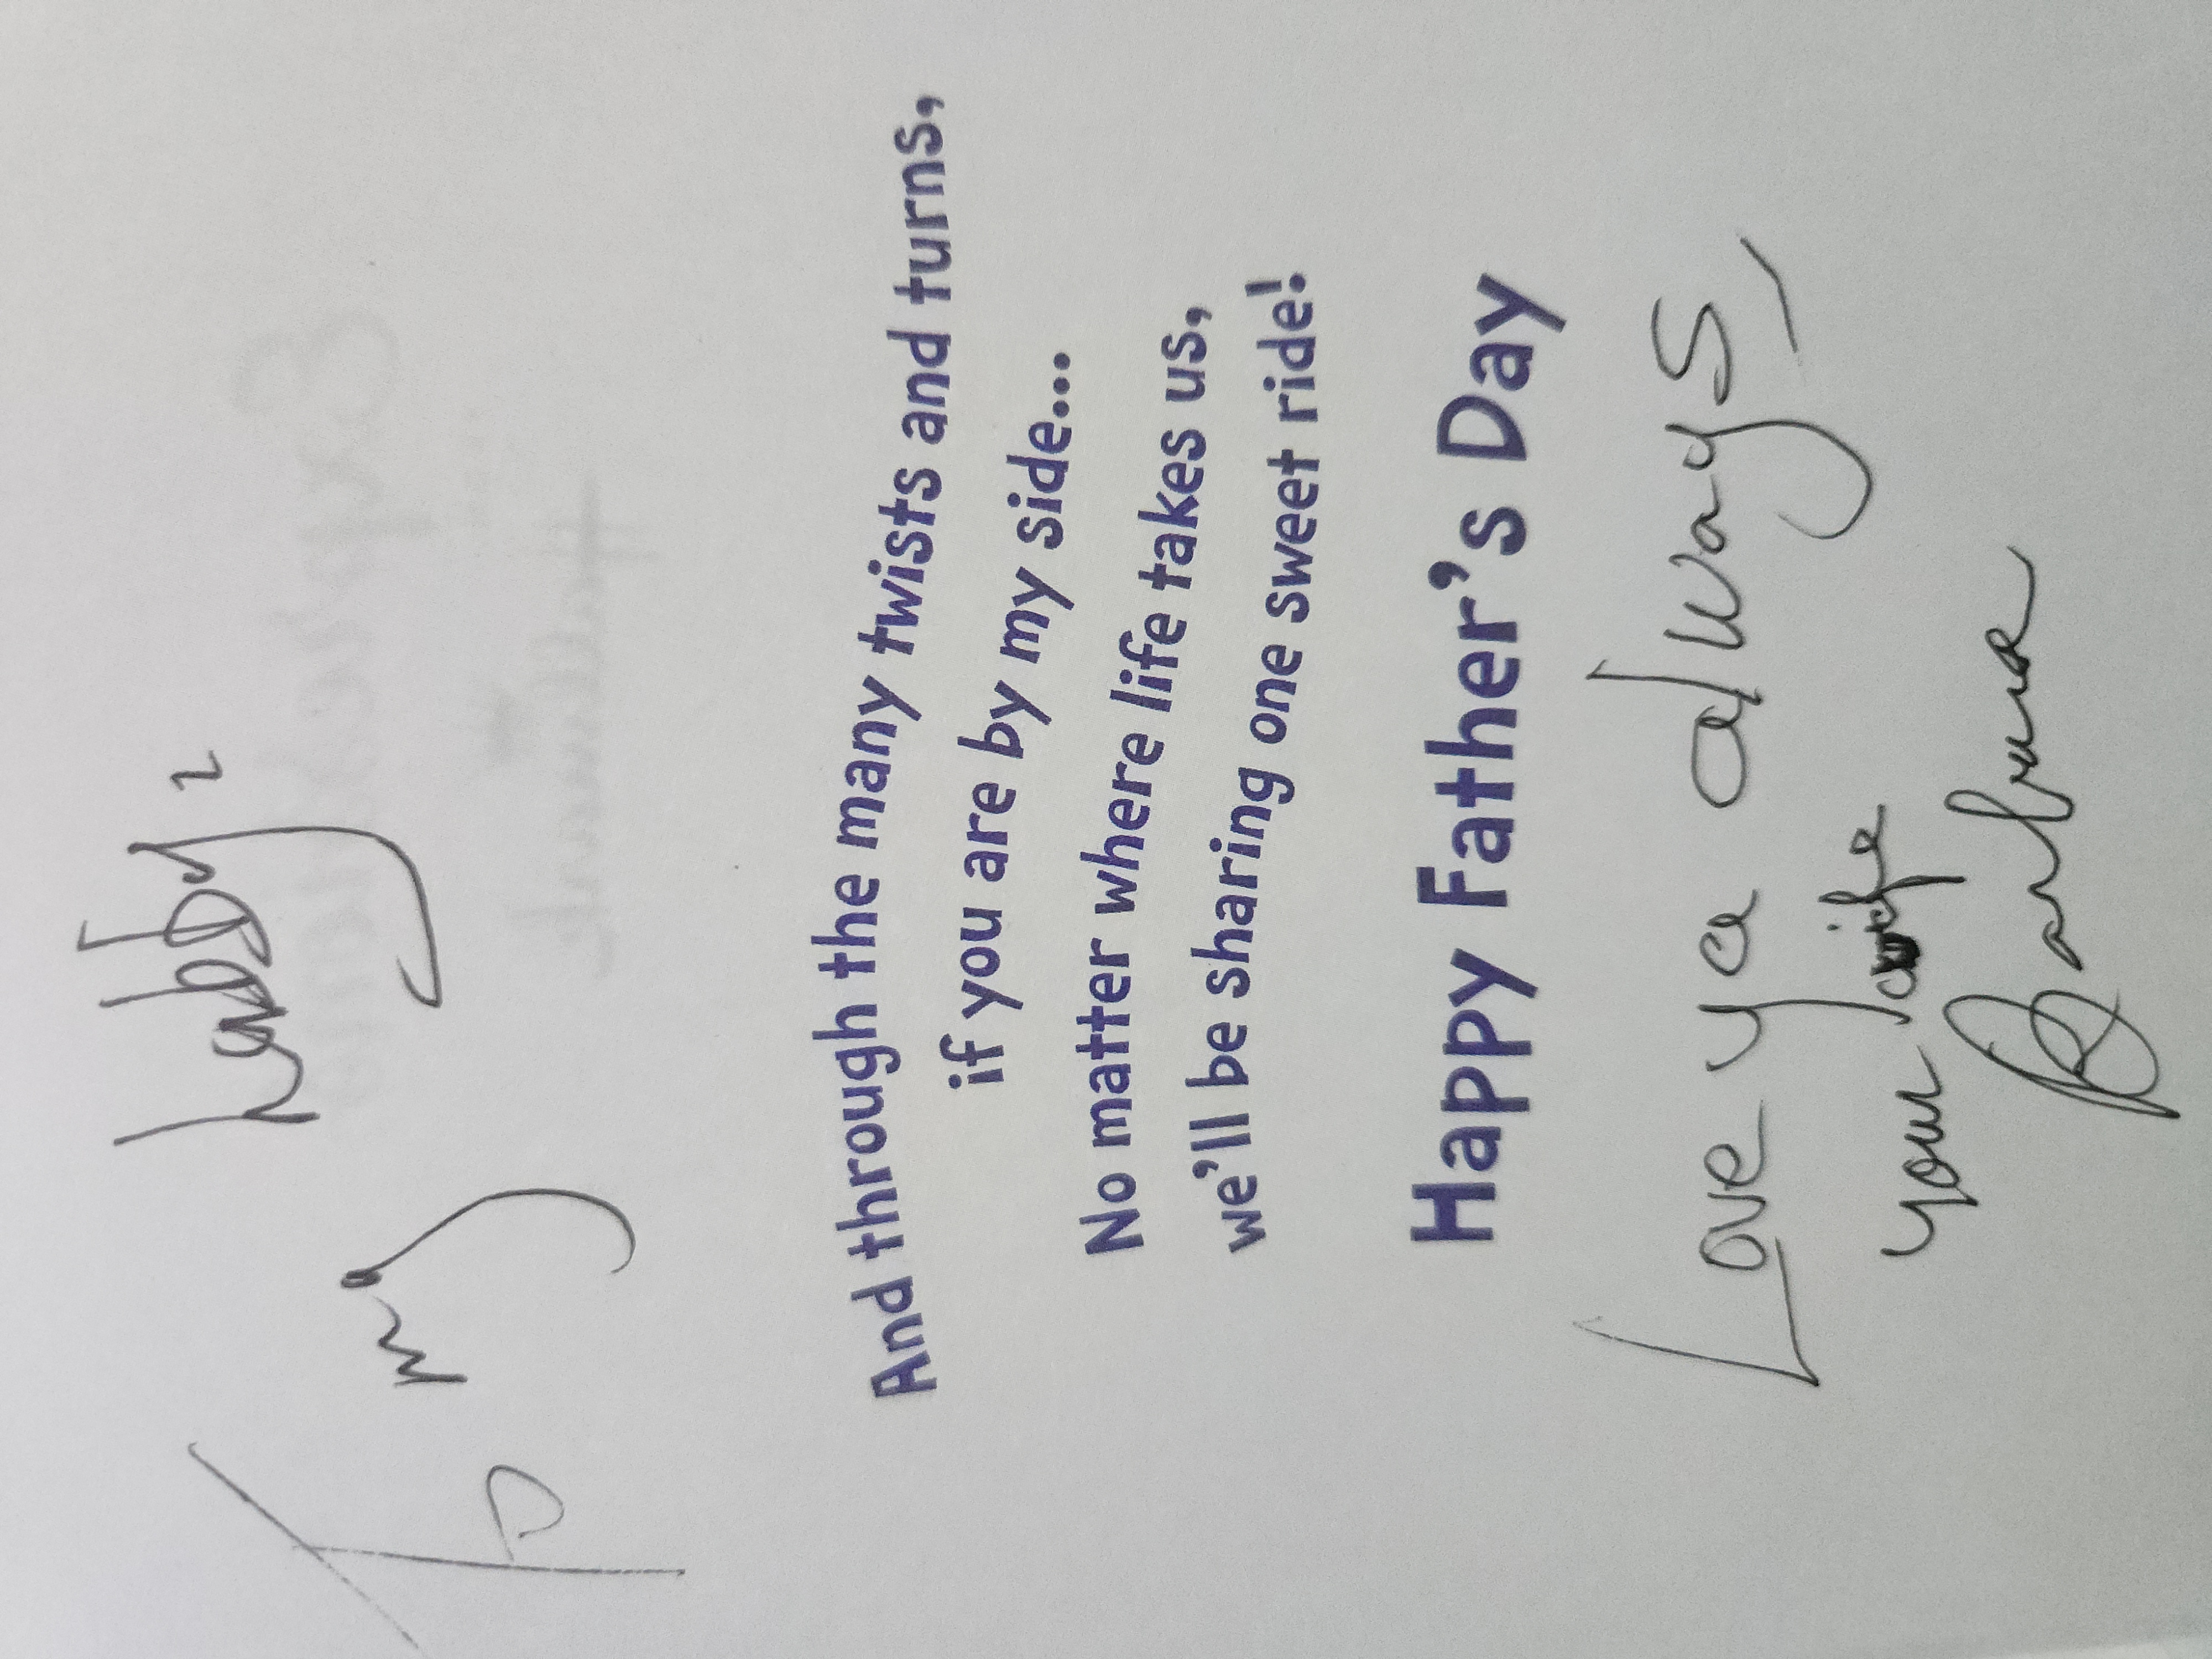 To my hubby
And through the many twists and turns,
if you are by my side...
No matter where life takes us,
we'll be sharing one sweet ride!
Happy Father's Day
Love ya always,
your wife
Barbara